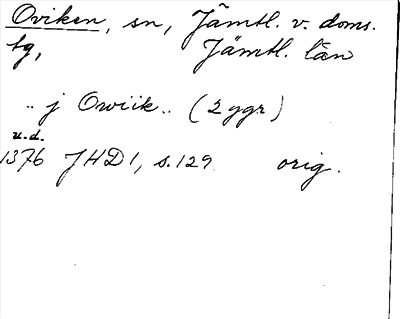 Oviken, sn, Jämtl. v. doms.
tg, Jämtl. län
.. j Owiik .. (2 ggr)
u.d.
1376 JHD 1, s. 129 orig.